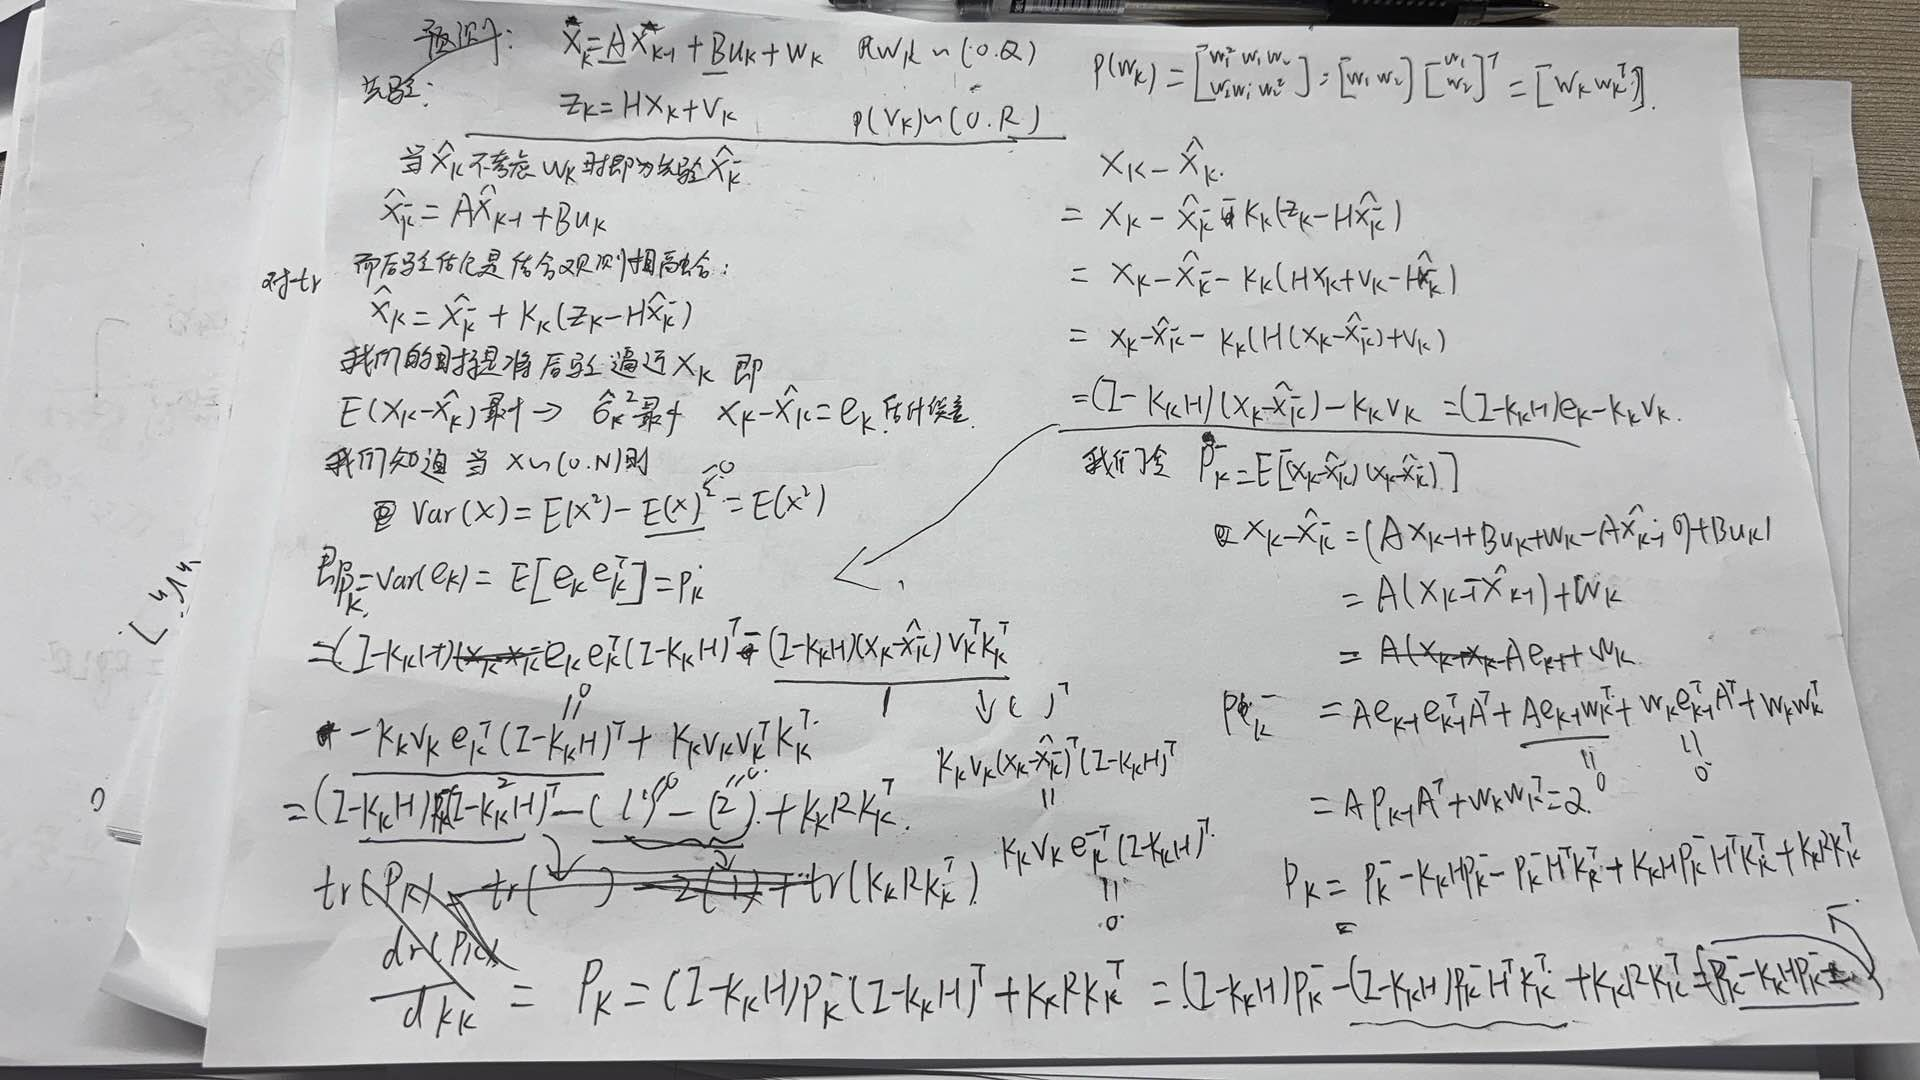 预测: X_k = AX_{k-1} + Bu_k + w_k P(w_k) ~ (0.Q)
先验: Z_k = HX_k + V_k P(V_k) ~ (0.R)
当 X̂_k 不考虑 w_k 时即为先验 X̂_k^-
X̂_k^- = AX̂_{k-1} + Bu_k
而后验估化是结合观测相融合:
对tr
X̂_k = X̂_k^- + K_k(Z_k - HX̂_k^-)
我们的目标是将后验逼近 X_k 即
E(X_k - X̂_k) 最小 → σ̂_k^2 最小 X_k - X̂_k = e_k 估计误差.
我们知道 当 X ~ (0.N) 则
Var(X) = E(X^2) - E(X)^2 = E(X^2)
=0
即 P_k = Var(e_k) = E[e_k e_k^T] = P_k
= (I - K_kH) e_k e_k^T (I - K_kH)^T - (I - K_kH)(X_k - X̂_k^-) V_k^T K_k^T
= 0
↓ ( )^T
- K_k V_k e_k^T (I - K_kH)^T + K_k V_k V_k^T K_k^T
K_k V_k (X_k - X̂_k^-)^T (I - K_kH)^T
=
K_k V_k e_k^{-T} (I - K_kH)^T.
=
0.
= (I - K_kH) P_k^- (I - K_kH)^T - (1) - (2) + K_k R K_k^T.
tr(P_k) = tr( ) - 2(1) + tr(K_k R K_k^T)
dr(P_k)
d K_k
= P_k = (I - K_kH)P_k^-(I - K_kH)^T + K_k R K_k^T = (I - K_kH)P_k^- - (I - K_kH)P_k^-H^TK_k^T + K_k R K_k^T = (P_k^- - K_kHP_k^-
P(w_k) = [w_1^2 w_1w_2 w_2w_1 w_2^2] = [w_1 w_2] [w_1 w_2]^T = [w_k w_k^T].
X_k - X̂_k.
= X_k - X̂_k^- - K_k(Z_k - HX̂_k^-)
= X_k - X̂_k^- - K_k(HX_k + V_k - HX̂_k^-)
= X_k - X̂_k^- - K_k(H(X_k - X̂_k^-) + V_k)
= (I - K_kH)(X_k - X̂_k^-) - K_kV_k = (I - K_kH)e_k - K_kV_k.
我们令 P_k^- = E[(X_k - X̂_k^-)(X_k - X̂_k^-)^T]
X_k - X̂_k^- = (AX_{k-1} + Bu_k + w_k - AX̂_{k-1} + Bu_k)
= A(X_{k-1} - X̂_{k-1}) + w_k
= Ae_{k-1} + w_k
P_k^- = Ae_{k-1}e_{k-1}^TA^T + Ae_{k-1}w_k^T + w_ke_{k-1}^TA^T + w_kw_k^T
= 0 = 0
= AP_{k-1}A^T + w_kw_k^T = Q
P_k = P_k^- - K_kHP_k^- - P_k^-H^TK_k^T + K_kHP_k^-H^TK_k^T + K_kRK_k^T